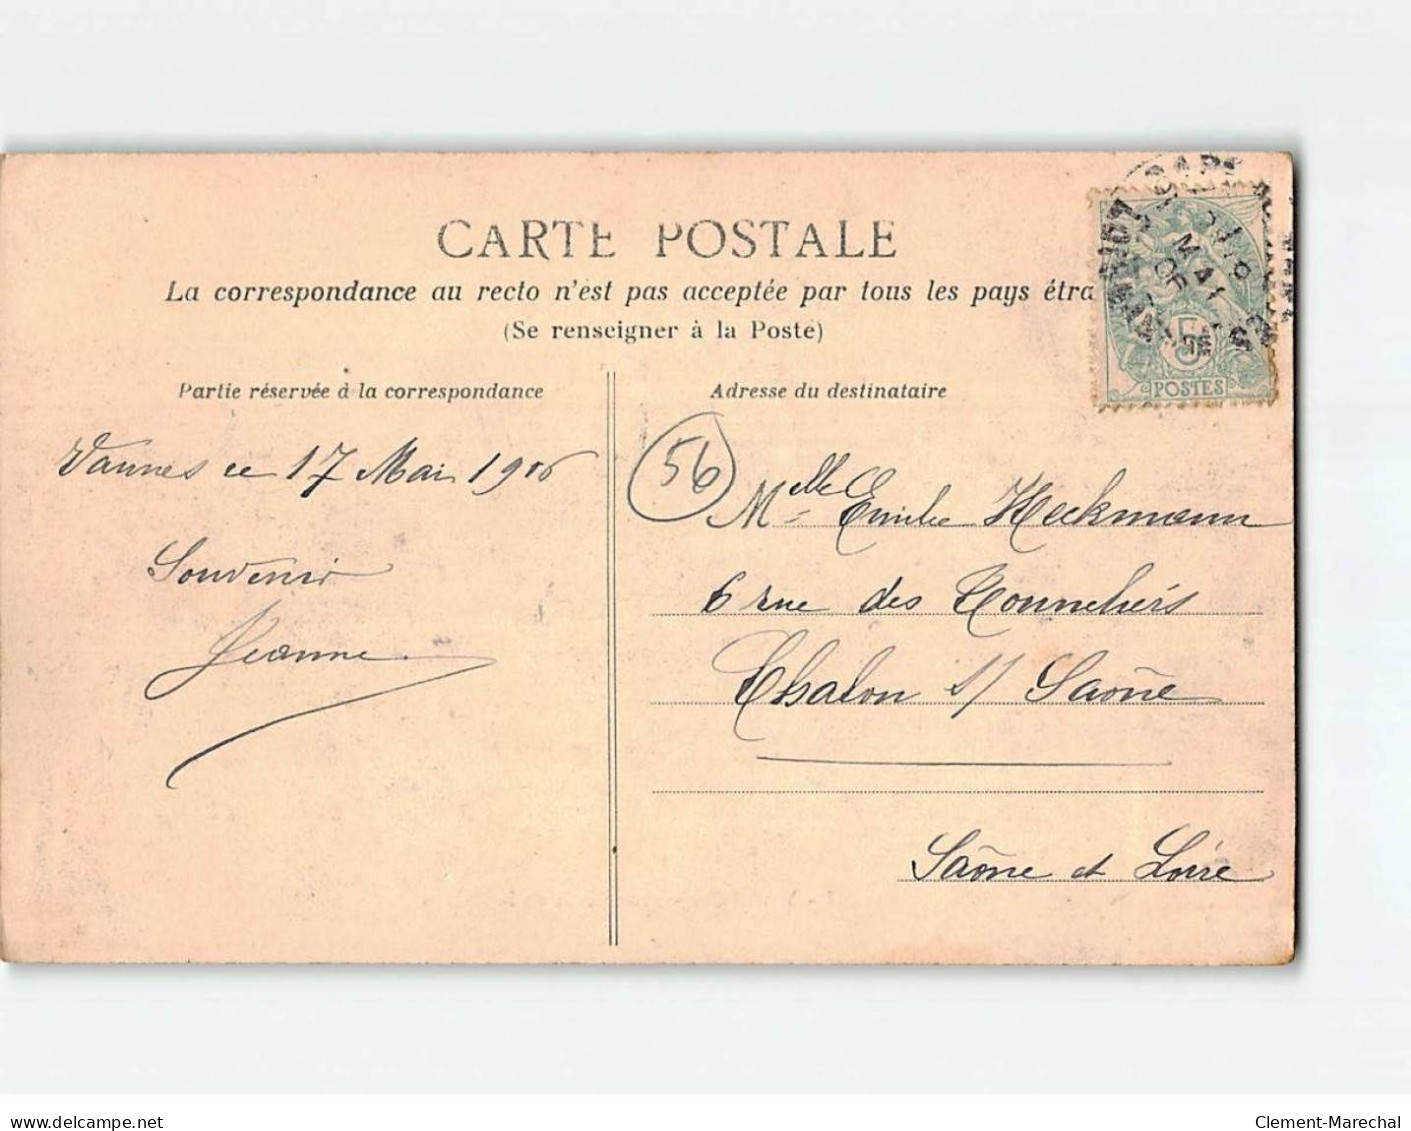 CARTE POSTALE
La correspondance au recto n'est pas acceptée par tous les pays étra
(Se renseigner à la Poste)
Partie réservée à la correspondance
Adresse du destinataire
Vannes ce 17 Mai 1906
Souvenir
Jeanne
56
Melle Emilie Heckmann
6 rue des Tonneliers
Chalon s/ Saône
Saône et Loire
MAI
5
POSTES
www.delcampe.net
Clement-Marechal